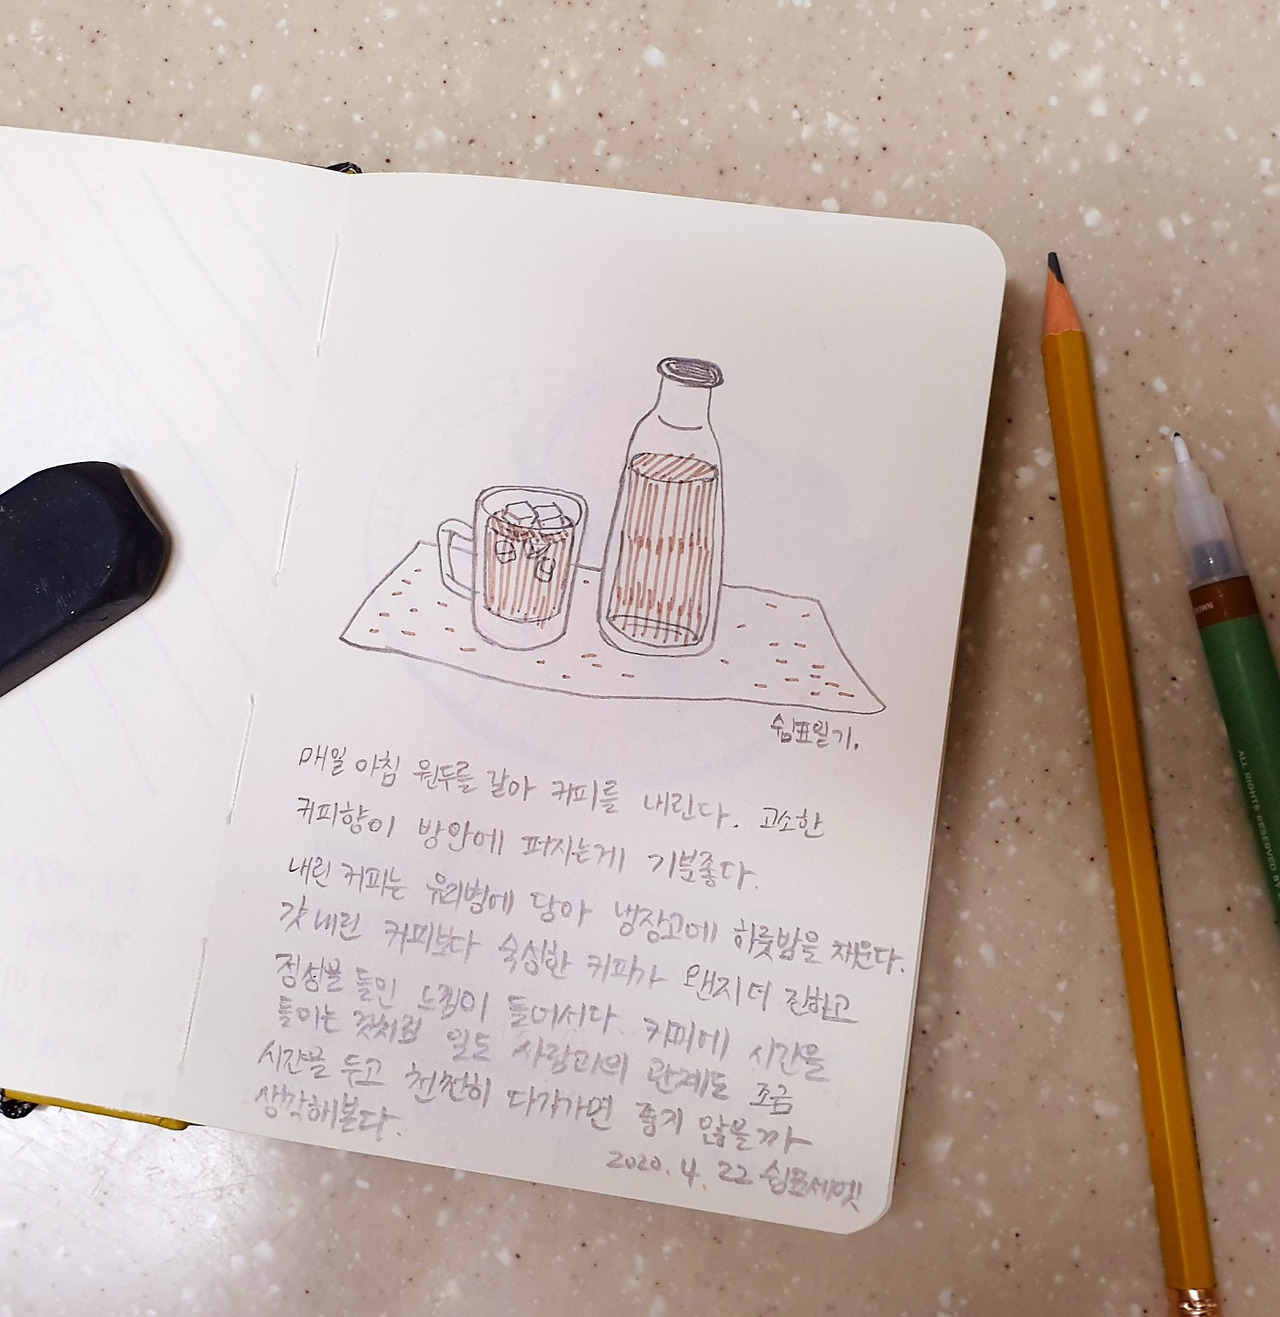 쉼표일기.
매일 아침 원두를 갈아 커피를 내린다. 고소한
커피향이 방안에 퍼지는게 기분좋다.
내린 커피는 유리병에 담아 냉장고에 하룻밤을 재운다.
갓 내린 커피보다 숙성한 커피가 왠지 더 진하고
정성을 들인 느낌이 들어서다. 커피에 시간을
들이는 것처럼 일도 사람과의 관계도 조금
시간을 두고 천천히 다가가면 좋지 않을까
생각해본다.
2020. 4. 22 쉼표세엣
ALL RIGHTS RESERVED